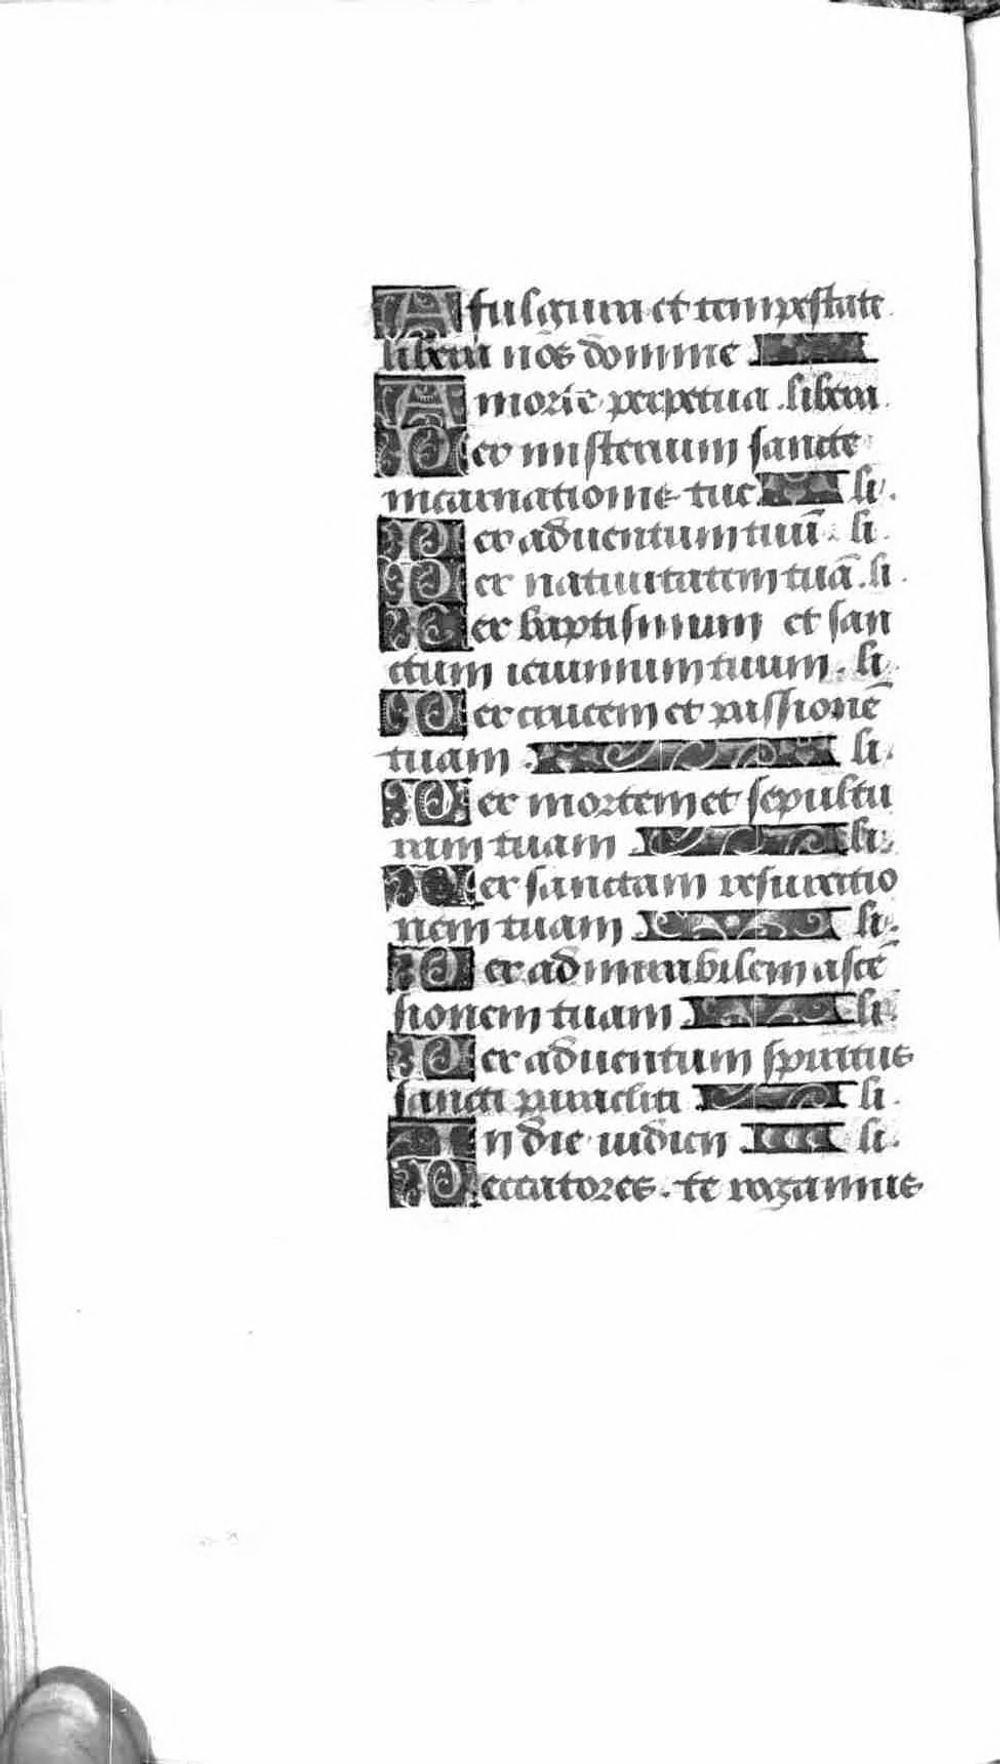 A fulgure et tempestate
libera nōs dōmine
A morte perpetua . libera
Per misterium sancte
incarnationis tue li .
Per aduentum tuū . li .
Per natiuitatem tuā . li .
Per baptismum et san
ctum ieiunium tuum . li .
Per crucem et passionē
tuam . li .
Per mortem et sepultu
ram tuam li .
Per sanctam resurrectio
nem tuam li .
Per admirabilem ascē
sionem tuam li .
Per aduentum spiritus
sancti paracliti li .
In die iudicii li .
Peccatores . te rogamus